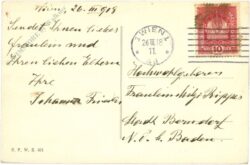 Wien, 26. III. 1918
Sendet Ihnen liebes
Fräulein und
Ihren lieben Eltern
Ihre
Johanna
WIEN
26 III 18
Hochwohlgeboren
Fräulein
Stadt Berndorf
N. Ö. b. Baden